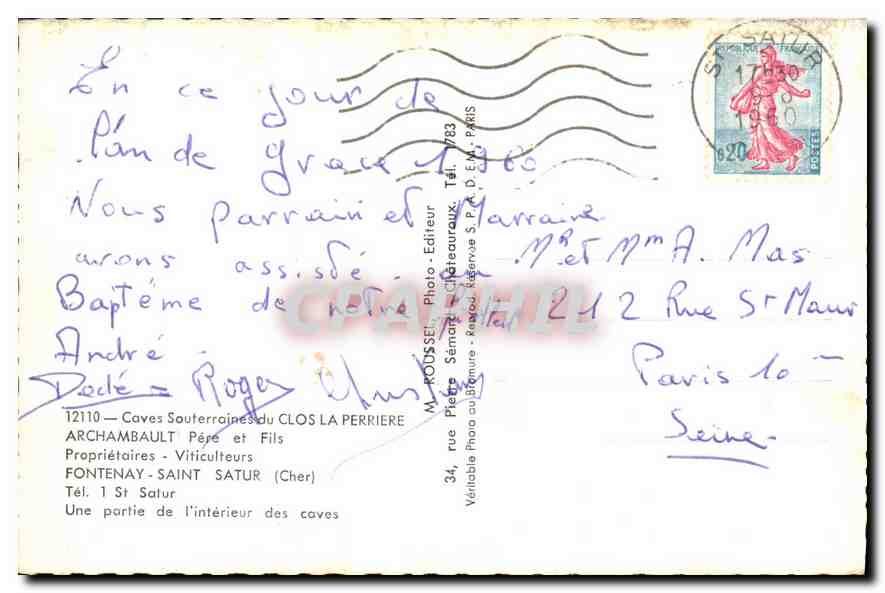 En ce jour de
l'an de grace 1960
Nous parrain et Marraine
avons assisté au
Baptême de notre petit
André.
Dédé - Roger
12110 — Caves Souterraines du CLOS LA PERRIERE
ARCHAMBAULT Père et Fils
Propriétaires - Viticulteurs
FONTENAY - SAINT SATUR (Cher)
Tél. 1 St Satur
Une partie de l'intérieur des caves
M. ROUSSEL, Photo - Editeur
34, rue Pierre Sémard - Châteauroux. Tél. 1783
Véritable Photo au Bromure - Reprod. Réservée S.P.A.D.E.M. - PARIS
ST SATUR
17H30
1960
REPUBLIQUE FRANÇAISE
0,20
POSTES
Mr et Mm A. Mas
212 Rue St Maur
Paris 10
Seine
CPAPHIL